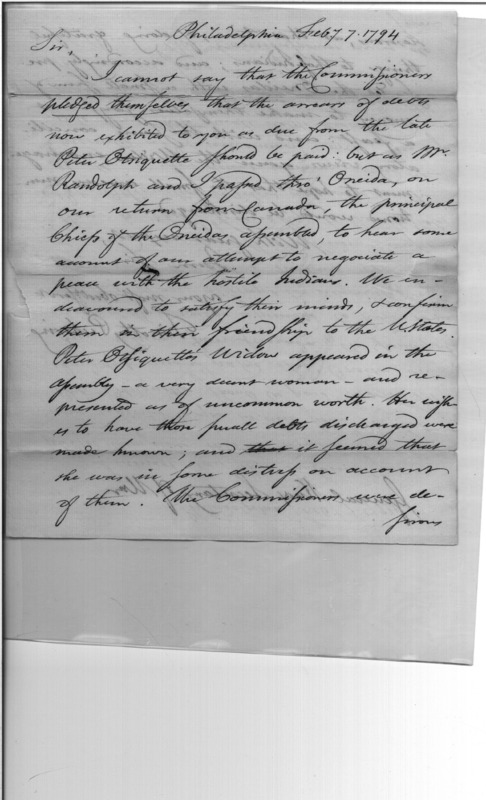 Philadelphia Feby. 7. 1794
Sir,
I cannot say that the Commissioners
pledged themselves that the arrears of debts
now exhibited to you as due from the late
Peter Otsiquette should be paid: but as Mr.
Randolph and I passed thro' Oneida, on
our return from Canada, the principal
Chiefs of the Oneidas assembled, to hear some
account of our attempt to negociate a
peace with the hostile Indians. We en-
deavoured to satisfy their minds, & confirm
them in their friendship to the UStates.
Peter Otsiquette's Widow appeared in the
assembly - a very decent woman - and re-
presented as of uncommon worth. Her wish-
es to have those small debts discharged were
made known; and that it seemed that
she was in some distress on account
of them. The Commissioners were de-
sirous